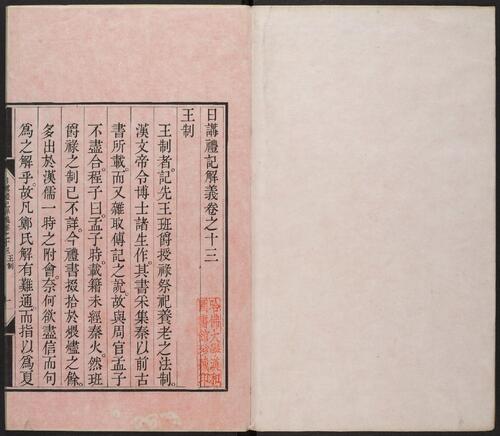 日講禮記解義卷之十三
王制
王制者記先王班爵授祿祭祀養老之法制。
漢文帝令博士諸生作其書采集秦以前古
書所載。而又雜取傳記之說。故與周官孟子
不盡合。程子曰。孟子時。載籍未經秦火。然班
爵祿之制已不詳。今禮書掇拾於煨燼之餘。
多出於漢儒一時之附會。奈何欲盡信而句
爲之解乎。故凡鄭氏解有難通。而指以爲夏
王制
一